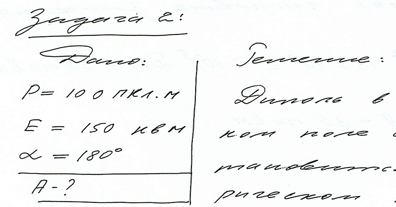 Задача 2:
Дано:
P = 100 пкл.м
E = 150 кв м
α = 180°
A - ?
Решение:
Диполь в
ком поле
тановится
рическом